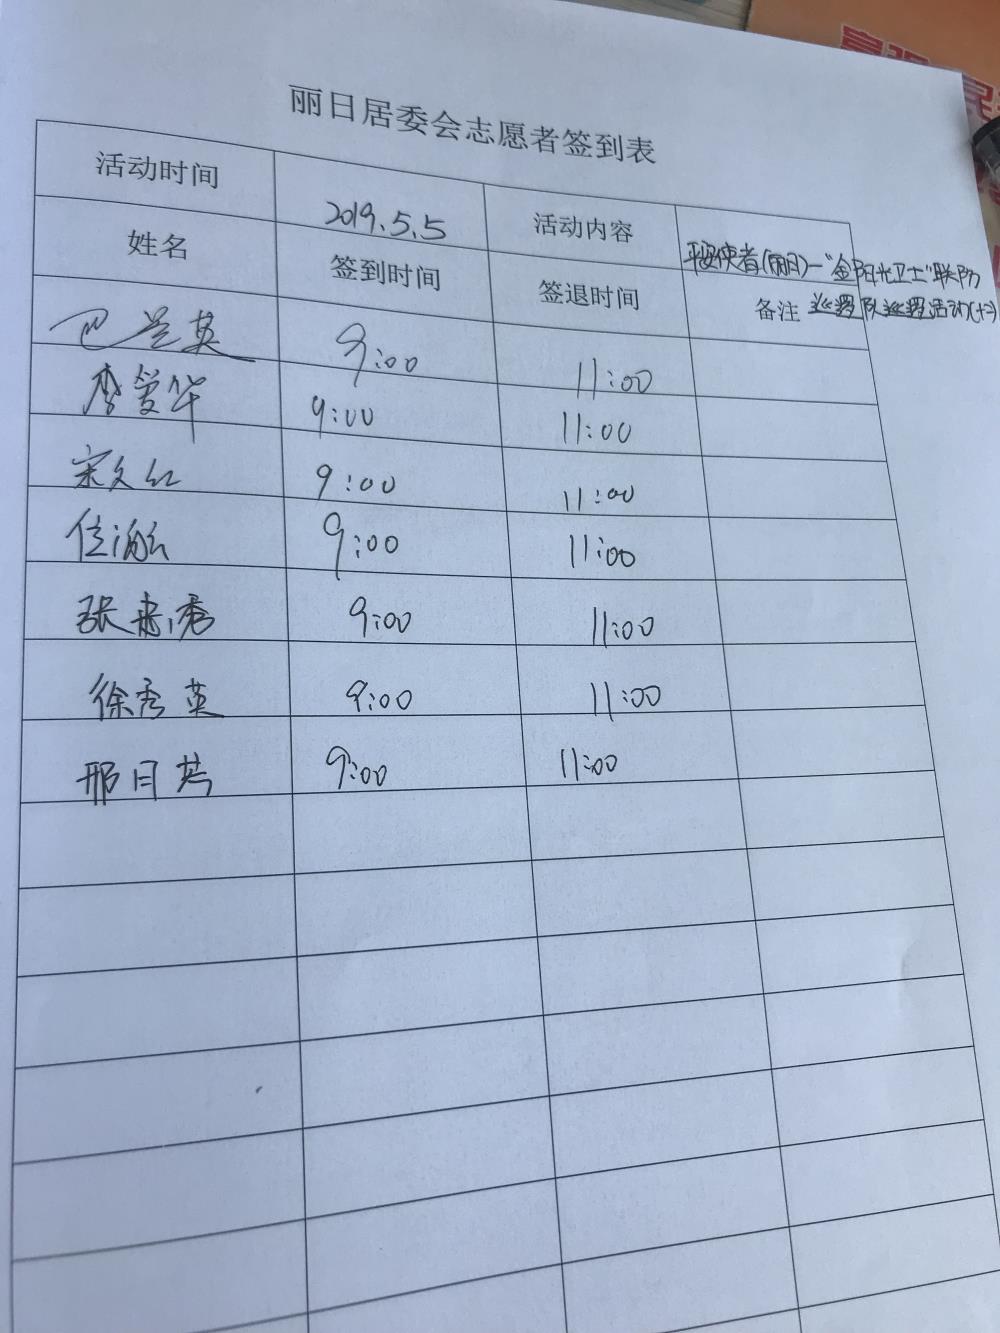 丽日居委会志愿者签到表
活动时间 2019.5.5 活动内容 平安使者(丽日)一"金阳光卫士"联防
巡逻队巡逻活动(十二)
姓名 签到时间 签退时间 备注
巴兰英 9:00 11:00
李爱华 9:00 11:00
宋文红 9:00 11:00
9:00 11:00
张惠秀 9:00 11:00
徐秀英 9:00 11:00
邢日芳 9:00 11:00